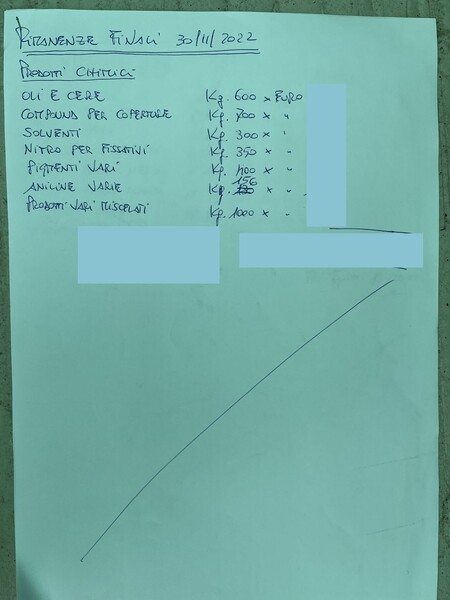 RIMANENZE FINALI 30/11/2022
PRODOTTI CHIMICI
OLI E CERE Kg. 600 x EURO
COMPOUND PER COPERTURE Kg. 700 x "
SOLVENTI Kg. 300 x "
NITRO PER FISSATIVI Kg. 350 x "
PIGMENTI VARI Kg. 400 x "
ANILINE VARIE Kg. 156 x "
PRODOTTI VARI MISCELATI Kg. 1000 x "